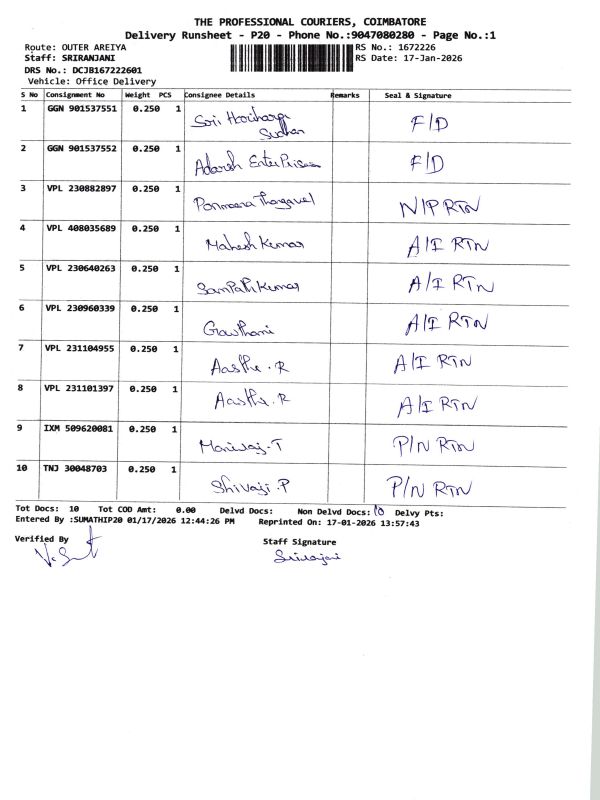 THE PROFESSIONAL COURIERS, COIMBATORE
Delivery Runsheet - P20 - Phone No.:9047080280 - Page No.:1
Route: OUTER AREIYA
RS No.: 1672226
Staff: SRIRANJANI
RS Date: 17-Jan-2026
DRS No.: DCJB167222601
Vehicle: Office Delivery
S No Consignment No Weight PCS Consignee Details Remarks Seal & Signature
1 GGN 901537551 0.250 1 Sri Harihara Sudhan F/D
2 GGN 901537552 0.250 1 Adarsh EnterPrises F/D
3 VPL 230882897 0.250 1 Ponmeena Thangavel N/P RTN
4 VPL 408035689 0.250 1 Mahesh Kumar A/I RTN
5 VPL 230640263 0.250 1 SamPath Kumar A/I RTN
6 VPL 230960339 0.250 1 Gowthami A/I RTN
7 VPL 231104955 0.250 1 Aastha . R A/I RTN
8 VPL 231101397 0.250 1 Aastha . R A/I RTN
9 IXM 509620081 0.250 1 P/N RTN
10 TNJ 30048703 0.250 1 Shivaji . P P/N RTN
Tot Docs: 10 Tot COD Amt: 0.00 Delvd Docs: Non Delvd Docs: 10 Delvy Pts:
Entered By :SUMATHIP20 01/17/2026 12:44:26 PM Reprinted On: 17-01-2026 13:57:43
Verified By
Staff Signature